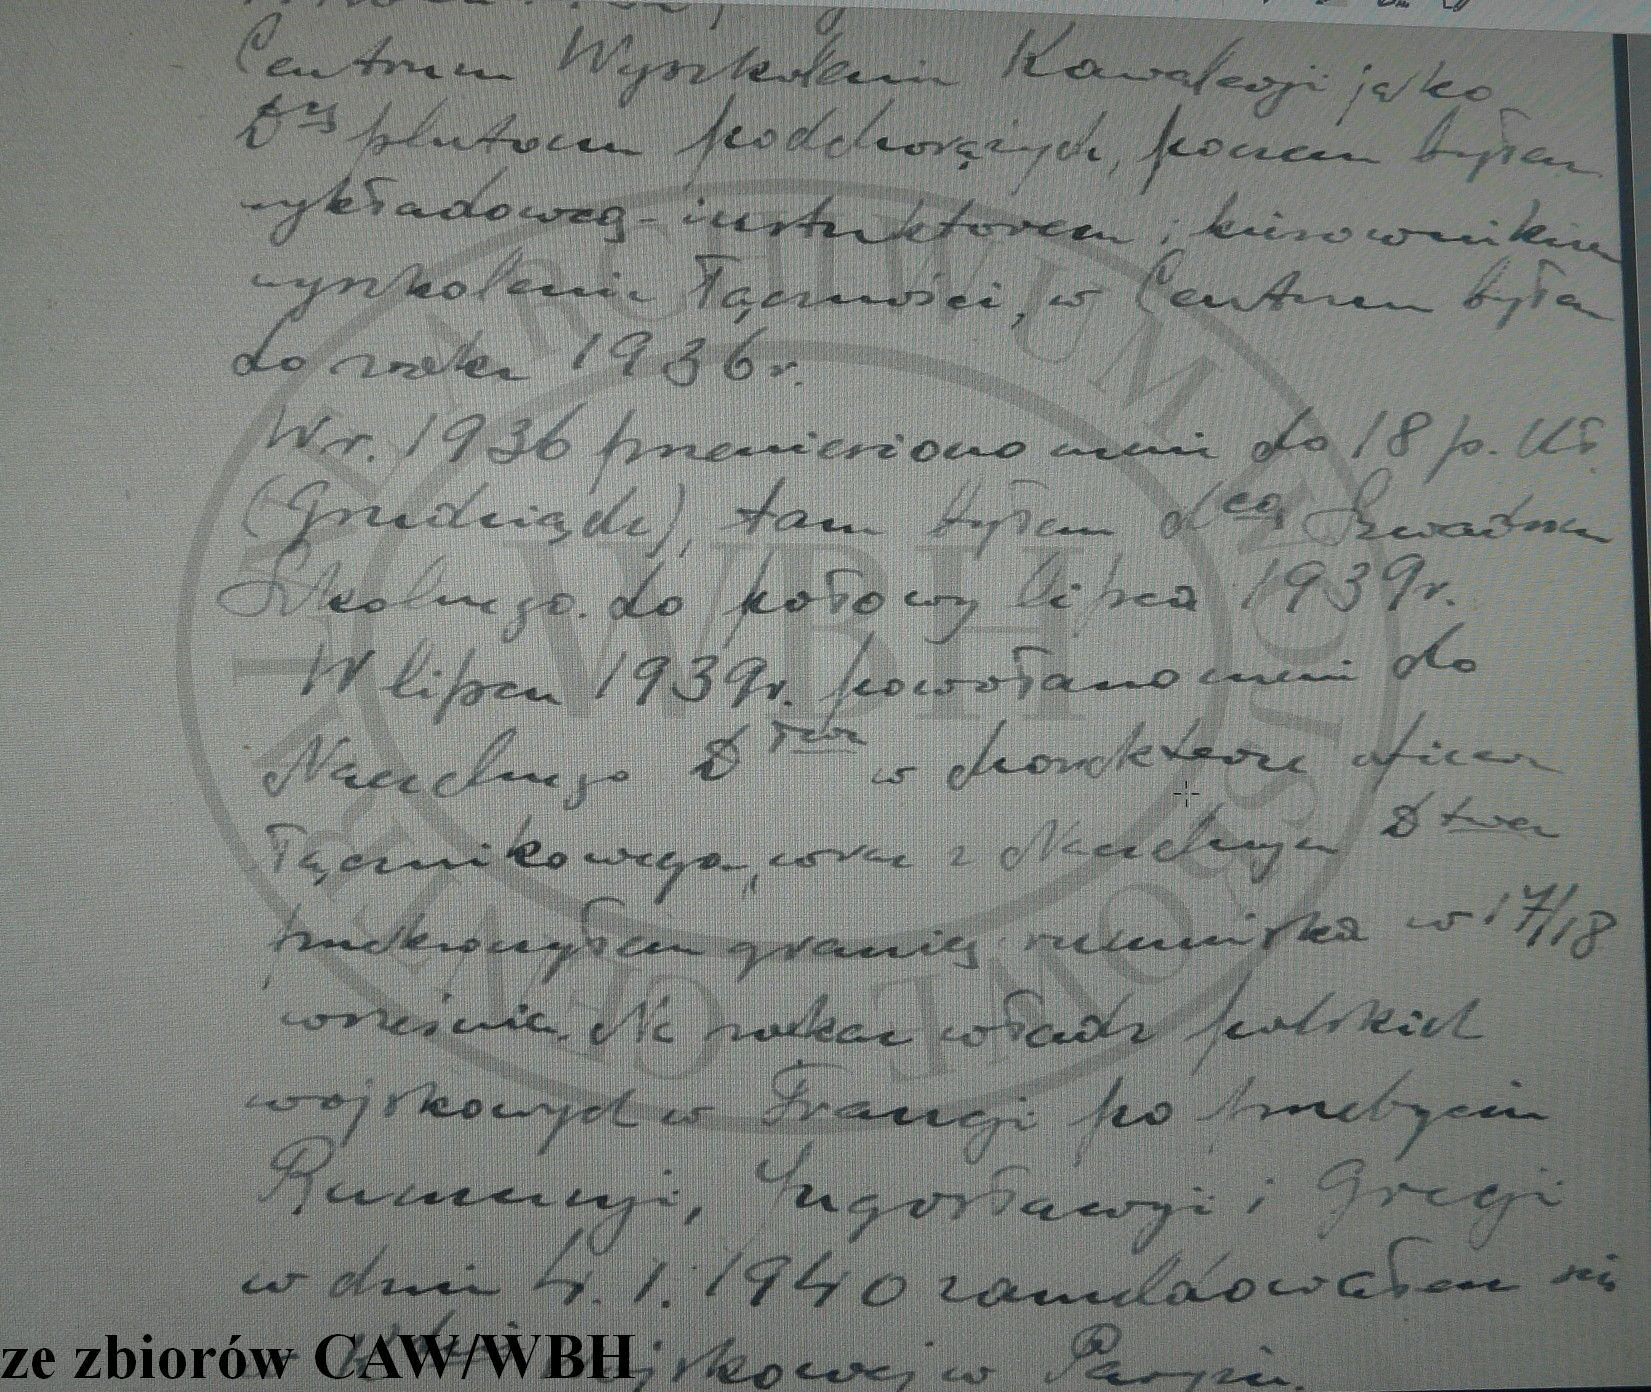 Centrum Wyszkolenia Kawalerji jako
D-cę plutonu podchorążych, potem byłem
wykładowcą-instruktorem i kierownikiem
wyszkolenia łączności, w Centrum byłem
do roku 1936r.
W r. 1936 przeniesiono mnie do 18 p. Uł.
(Grudziądz), tam byłem dcą Szwadronu
Szkolnego do połowy lipca 1939r.
W lipcu 1939r. powołano mnie do
Naczelnego D-twa w charakterze oficera
łącznikowego, wraz z Naczelnym D-twem
przekroczyłem granicę rumuńską w 17/18
września. Na rozkaz władz polskich
wojskowych w Francji po przebyciu
Rumunji, Jugosławji i Grecji
w dniu 4.1.1940 zameldowałem się
wojskowej w Paryżu.
ze zbiorów CAW/WBH
ARCHIWUM WOJSKOWE
WBH